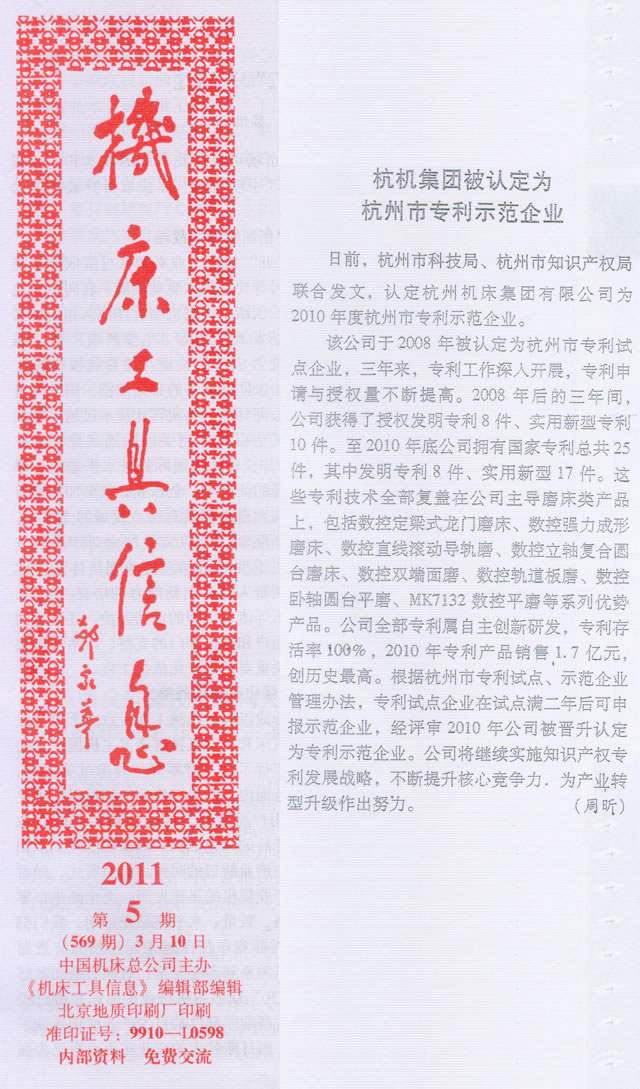 機床工具信息
2011
第 5 期
(569 期) 3 月 10 日
中国机床总公司主办
《机床工具信息》编辑部编辑
北京地质印刷厂印刷
准印证号：9910—L0598
内部资料 免费交流
杭机集团被认定为
杭州市专利示范企业
日前，杭州市科技局、杭州市知识产权局
联合发文，认定杭州机床集团有限公司为
2010 年度杭州市专利示范企业。
该公司于 2008 年被认定为杭州市专利试
点企业，三年来，专利工作深入开展，专利申
请与授权量不断提高。2008 年后的三年间，
公司获得了授权发明专利 8 件、实用新型专利
10 件。至 2010 年底公司拥有国家专利总共 25
件，其中发明专利 8 件、实用新型 17 件。这
些专利技术全部复盖在公司主导磨床类产品
上，包括数控定梁式龙门磨床、数控强力成形
磨床、数控直线滚动导轨磨、数控立轴复合圆
台磨床、数控双端面磨、数控轨道板磨、数控
卧轴圆台平磨、MK7132 数控平磨等系列优势
产品。公司全部专利属自主创新研发，专利存
活率 100%，2010 年专利产品销售 1.7 亿元，
创历史最高。根据杭州市专利试点、示范企业
管理办法，专利试点企业在试点满二年后可申
报示范企业，经评审 2010 年公司被晋升认定
为专利示范企业。公司将继续实施知识产权专
利发展战略，不断提升核心竞争力．为产业转
型升级作出努力。 （周昕）